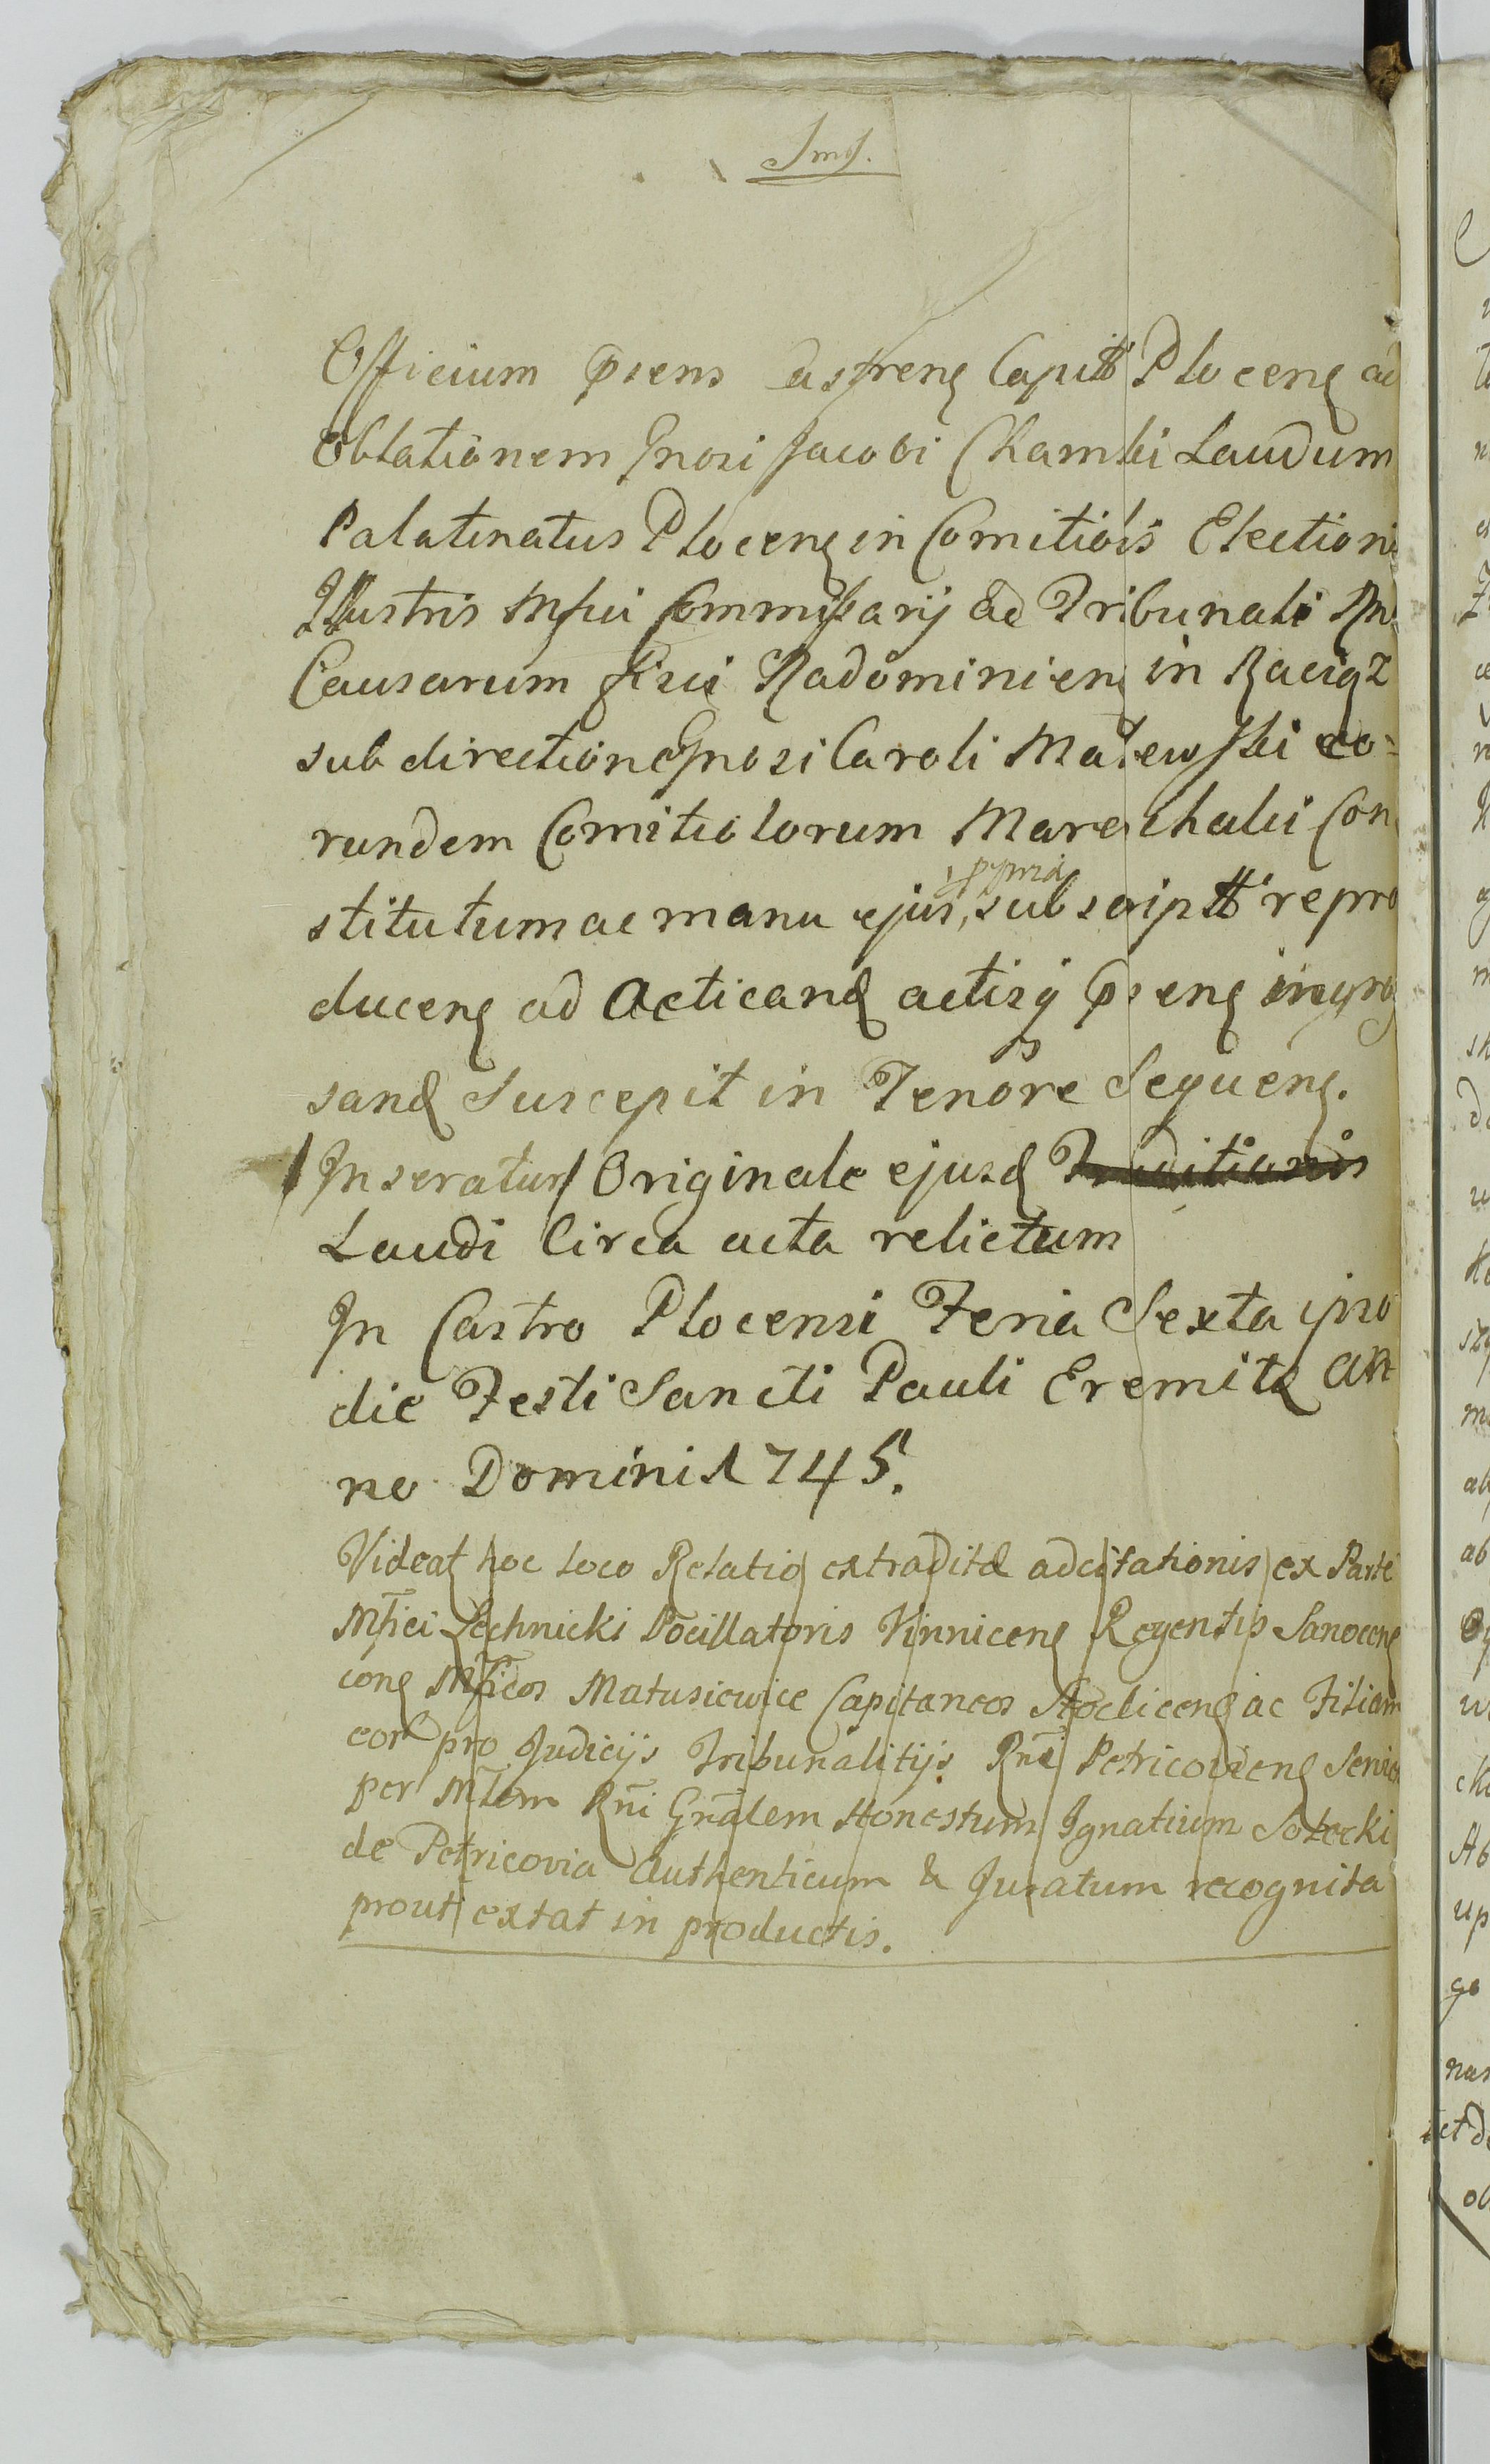 Officium Prens Castrens Capitt Plocens ad
Oblationem Gnosi Jacobi Chamski Laudum
Palatinatus Plocens in Comitiolis Electionis
Illustris Mfici Commissarij ad Tribunali Rni
Causarum fisci Radominiens in Raciąz
sub directione Gnosi Caroli Malewski eo=
rundem Comitiolorum Mareschalci Con
stitutum ac manu ejus, ppria subscriptt repro
ducens ad Acticand actisq Prens ingros
sand Suscepit in Tenore Sequens.
Inseratur Originale ejusd
Laudi Circa acta relictum
In Castro Plocensi Feria Sexta ipso
die Festi Sancti Pauli Eremitæ An
no Domini 1745.
Videat hoc loco Relatio extraditæ adcitationis ex Parte
Mfici Lechnicki Pocillatoris Vinnicens Regentis Sanocens
cons Mficos Matusiewice Capitaneos Stocliscens ac Filiam
eor pro Judicijs Tribunalitijs Rni Petricoviens Servic
per Mlem Rni Gnalem Honestum Ignatium Solecki
de Petricovia Authenticum & Juratum recognita
prout extat in productis.